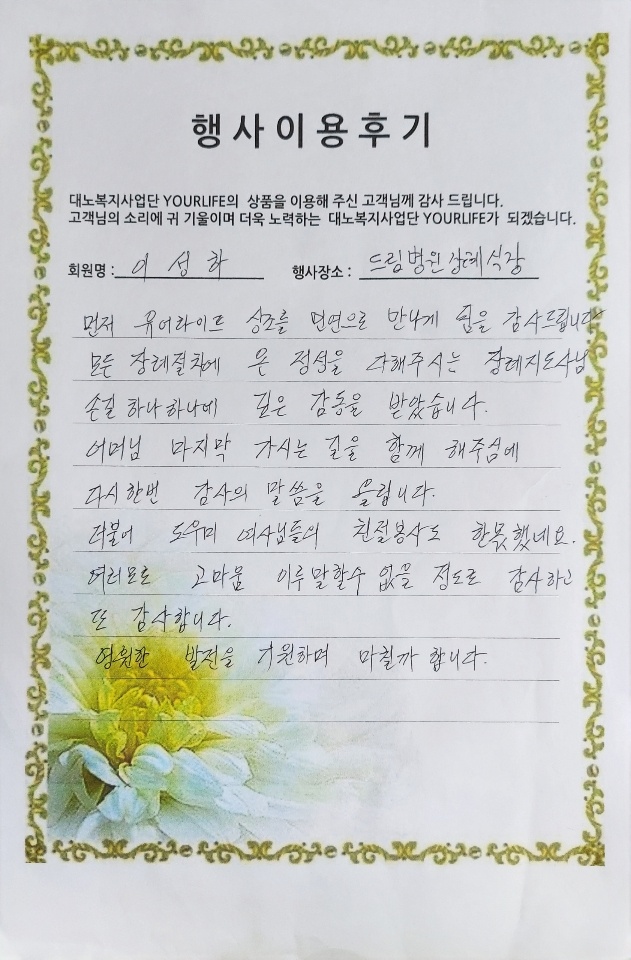 행사이용후기
대노복지사업단 YOURLIFE의 상품을 이용해 주신 고객님께 감사 드립니다.
고객님의 소리에 귀 기울이며 더욱 노력하는 대노복지사업단 YOURLIFE가 되겠습니다.
회원명 : 이성화 행사장소 : 드림병원장례식장
먼저 유어라이프 상조를 인연으로 만나게 됨을 감사드립니다
모든 장례절차에 온 정성을 다해주시는 장례지도사님
손길 하나하나에 깊은 감동을 받았습니다.
어머님 마지막 가시는 길을 함께 해주심에
다시한번 감사의 말씀을 올립니다.
더불어 도우미 여사님들의 친절봉사도 한몫했네요.
여러모로 고마움 이루말할수 없을 정도로 감사하고
또 감사합니다.
영원한 발전을 기원하며 마칠까 합니다.